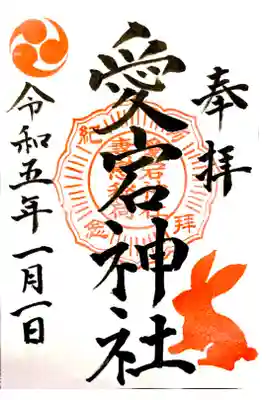 奉拝
愛宕神社
令和五年一月一日